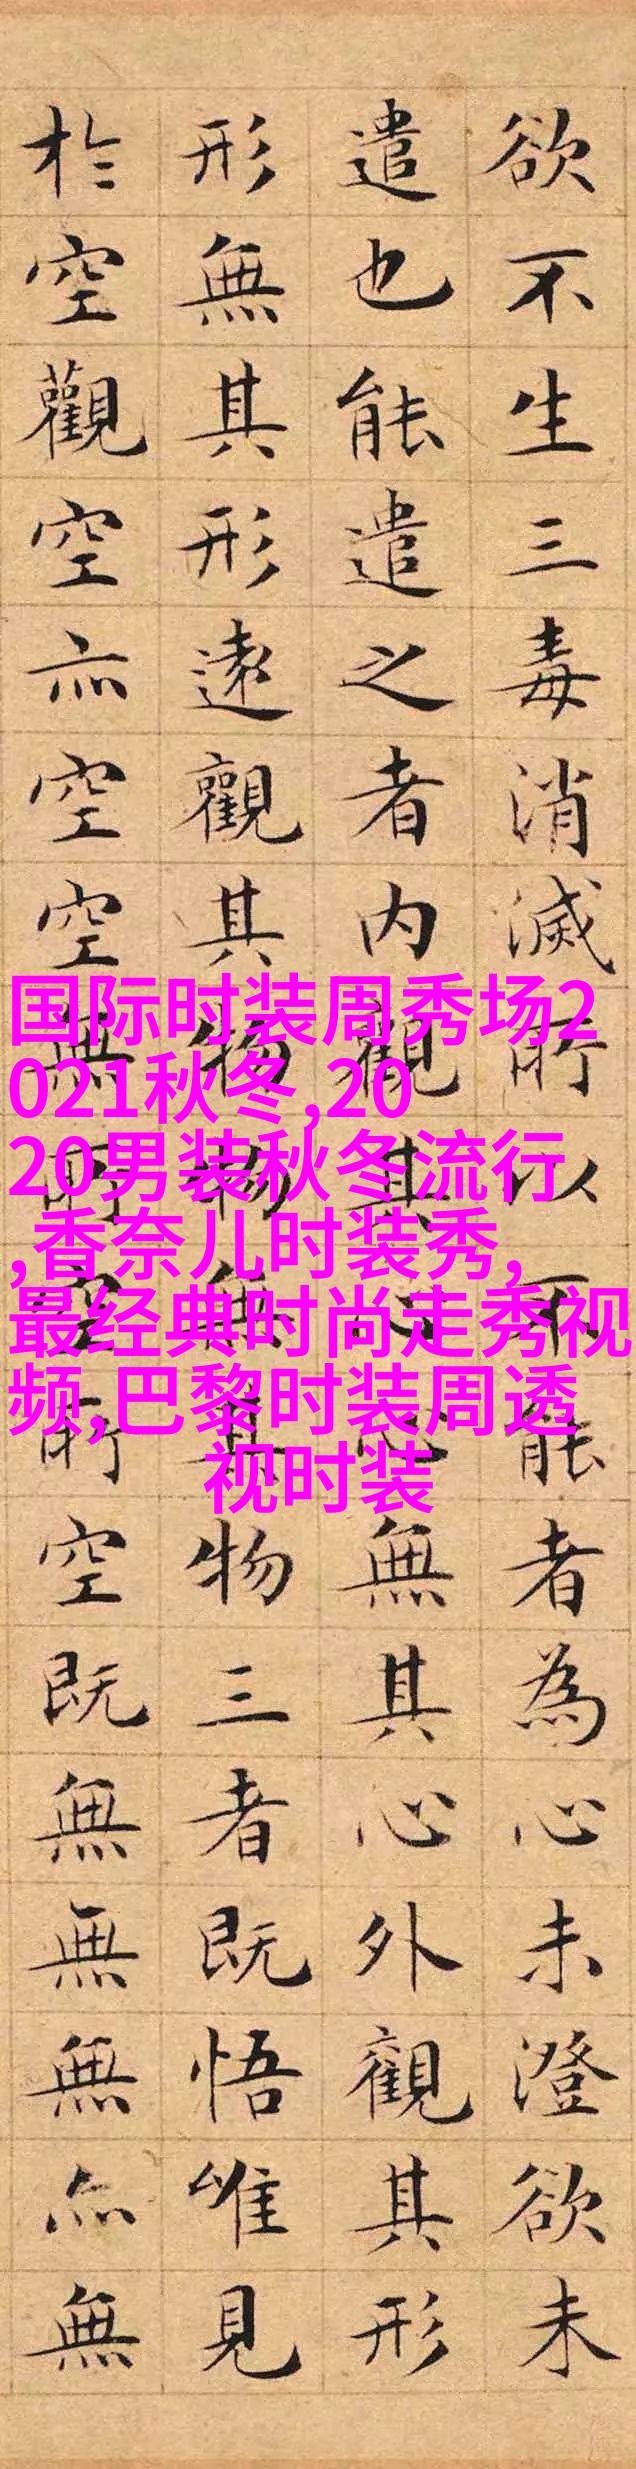 欲不生三毒消滅所以不能者為心未澄欲未
遣也能遣之者内觀其心心無其心外觀其形
形無其形遠觀其物物無其物三者既悟唯見
於空觀空亦空空無所空所空既無無無亦無
国际时装周秀场2
021秋冬,20
20男装秋冬流行
,香奈儿时装秀,
最经典时尚走秀视
频,巴黎时装周透
视时装